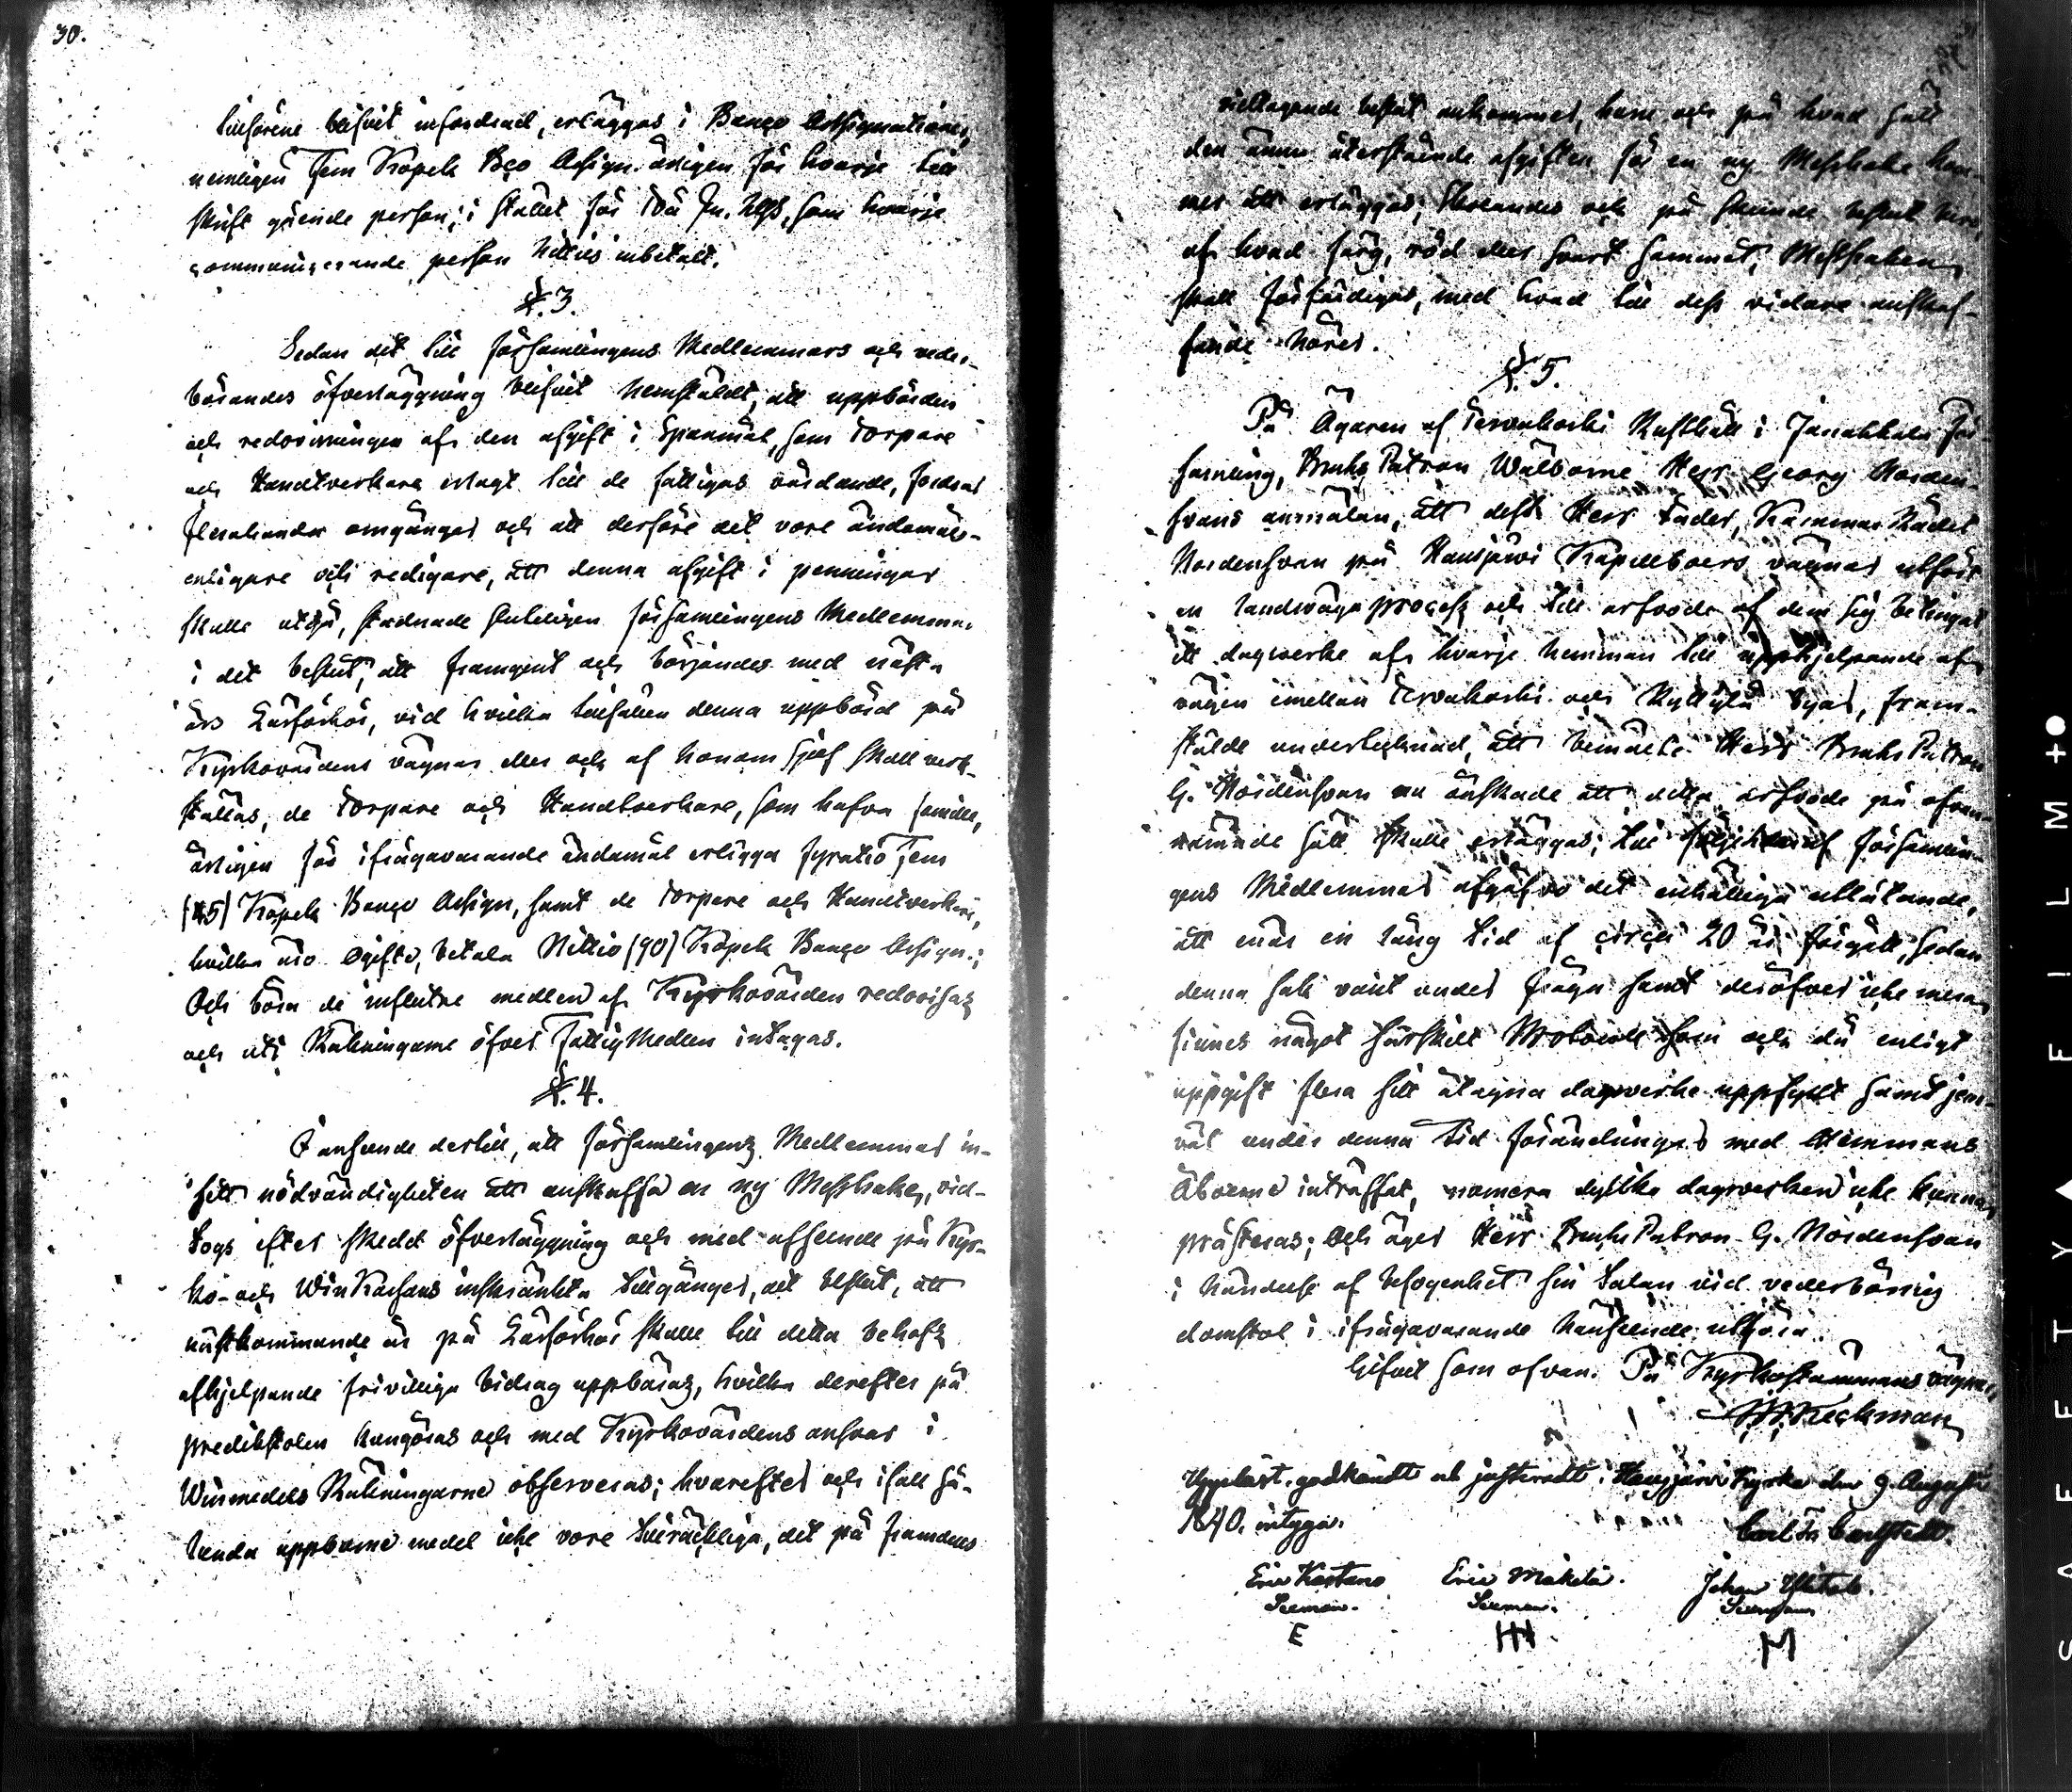 30.
tillförene blifvit infordrad, erläggas i Banco Assignationer,
nemligen Fem Kopek Bco Assign. årligen för hvarje till
skrift gående person; i stället för två                 som hvarje
communicerande person hittils inbetalt.
§. 3.
Sedan det till församlingens Medlemmars och veder-
börandes öfverläggning blifvit hemstäldt, att uppbörden
och redovisningen af den afgift i Spanmål, som Torpare
och Handtverkare erlagt till de fattigas vårdande, fordrar
flerahanda omgånger och att derföre det vore ändamåls-
enligare och redigare, att denna afgift i penningar
skulle utgå, stadnade slutligen församlingens Medlemmar
i det beslut, att framgent och börjandes med nästa
års Läsförhör, vid hvilka tillfällen denna uppbörd på
Kyrkovärdens vägnar eller och af honom sjelf skall verk-
ställas, de Torpare och Handtverkare, som hafva familie,
årligen för ifrågavarande ändamål erlägga fyratio Fem
(45) Kopek Banco Assign, samt de Torpare och Handtverkare,
hvilka äro Ogifte, betala Nittio (90) Kopek Banco Assign.;
Och böra de influtne medlen af Kyrkovärden redovisas
och uti Räkningarne öfver FattigMedlen intagas.
§. 4.
I anseende dertill, att församlingens Medlemmar in-
sett nödvändigheten att anskaffa en ny Messhake, vid-
togs efter skedd öfverläggning och med afseende på Kyr-
ko- och WinKassans inskränkta tillgånger, det beslut, att
nästkommande år på Läsförhör skulle till detta behofs
afhjelpande frivilliga bidrag uppbäras, hvilka derefter på
predikstolen kungöras och med Kyrkovärdens ansvar i
Winmedels Räkningarne observeras; hvarefter och ifall så-
lunda uppburne medel icke vore tillräckliga, det på framdeles
vidtagande beslut ankommer, huru och på hvad sätt
den ännu återstående afgiften för en ny Messhake kom-
mer att erläggas; Skolandes och på samma beslut bero,
af hvad färg, röd eller svart sammet, Messhaken
skall förfärdigas, med hvad till dess vidare anskaf-
fande hörer.
§. 5.
På Ägaren af Terwakoski Rusthåll i Janakkala För-
samling, Bruks Patron Wälborne Herr Georg Norden-
svans anmälan, att dess Herr Fader, Kammar Rådet
Nordensvan på Hausjärvi Kapellboers vägnar utfört
en landtvägs process och till arfvode af dem sig betingat
ett dagsverke af hvarje hemman till upphjelpande af
vägen emellan Terwakoski och Ryttylä byar, fram-
stälde undertecknad, att bemälte Herr Bruks Patron
G. Nordensvan nu önskade att detta arfvode på ofvan-
nämnde sätt skulle erläggas; till följe hvaraf församlin-
gens Medlemmar afgåfvo det enhälliga utlåtande,
att enär en lång tid af circa 20 år förgått, sedan
denna sak varit under fråga samt deröfver icke mera
finnes något särskilt            som och då enligt
uppgift flera sitt åtagna dagsverke uppfyllt samt jem-
väl under denna tid förändringar med Hemmans
Åboerne inträffat, numera dylika dagsverken icke kunna
præsteras; Och äger Herr Bruks Patron G. Nordensvan
i händelse af befogenhet sin talan vid vederbörlig
domstol i ifrågavarande hänseende utföra.
Gifvet som ofvan. På Kyrkostämmans vägnar,

Uppläst, godkändt och justeradt i Hausjärvi Kyrka den 9 Augusti
1840, intyga.
Carl Fr. Carlstedt.
Eric           Eric Mäkelä. Johan
E
M